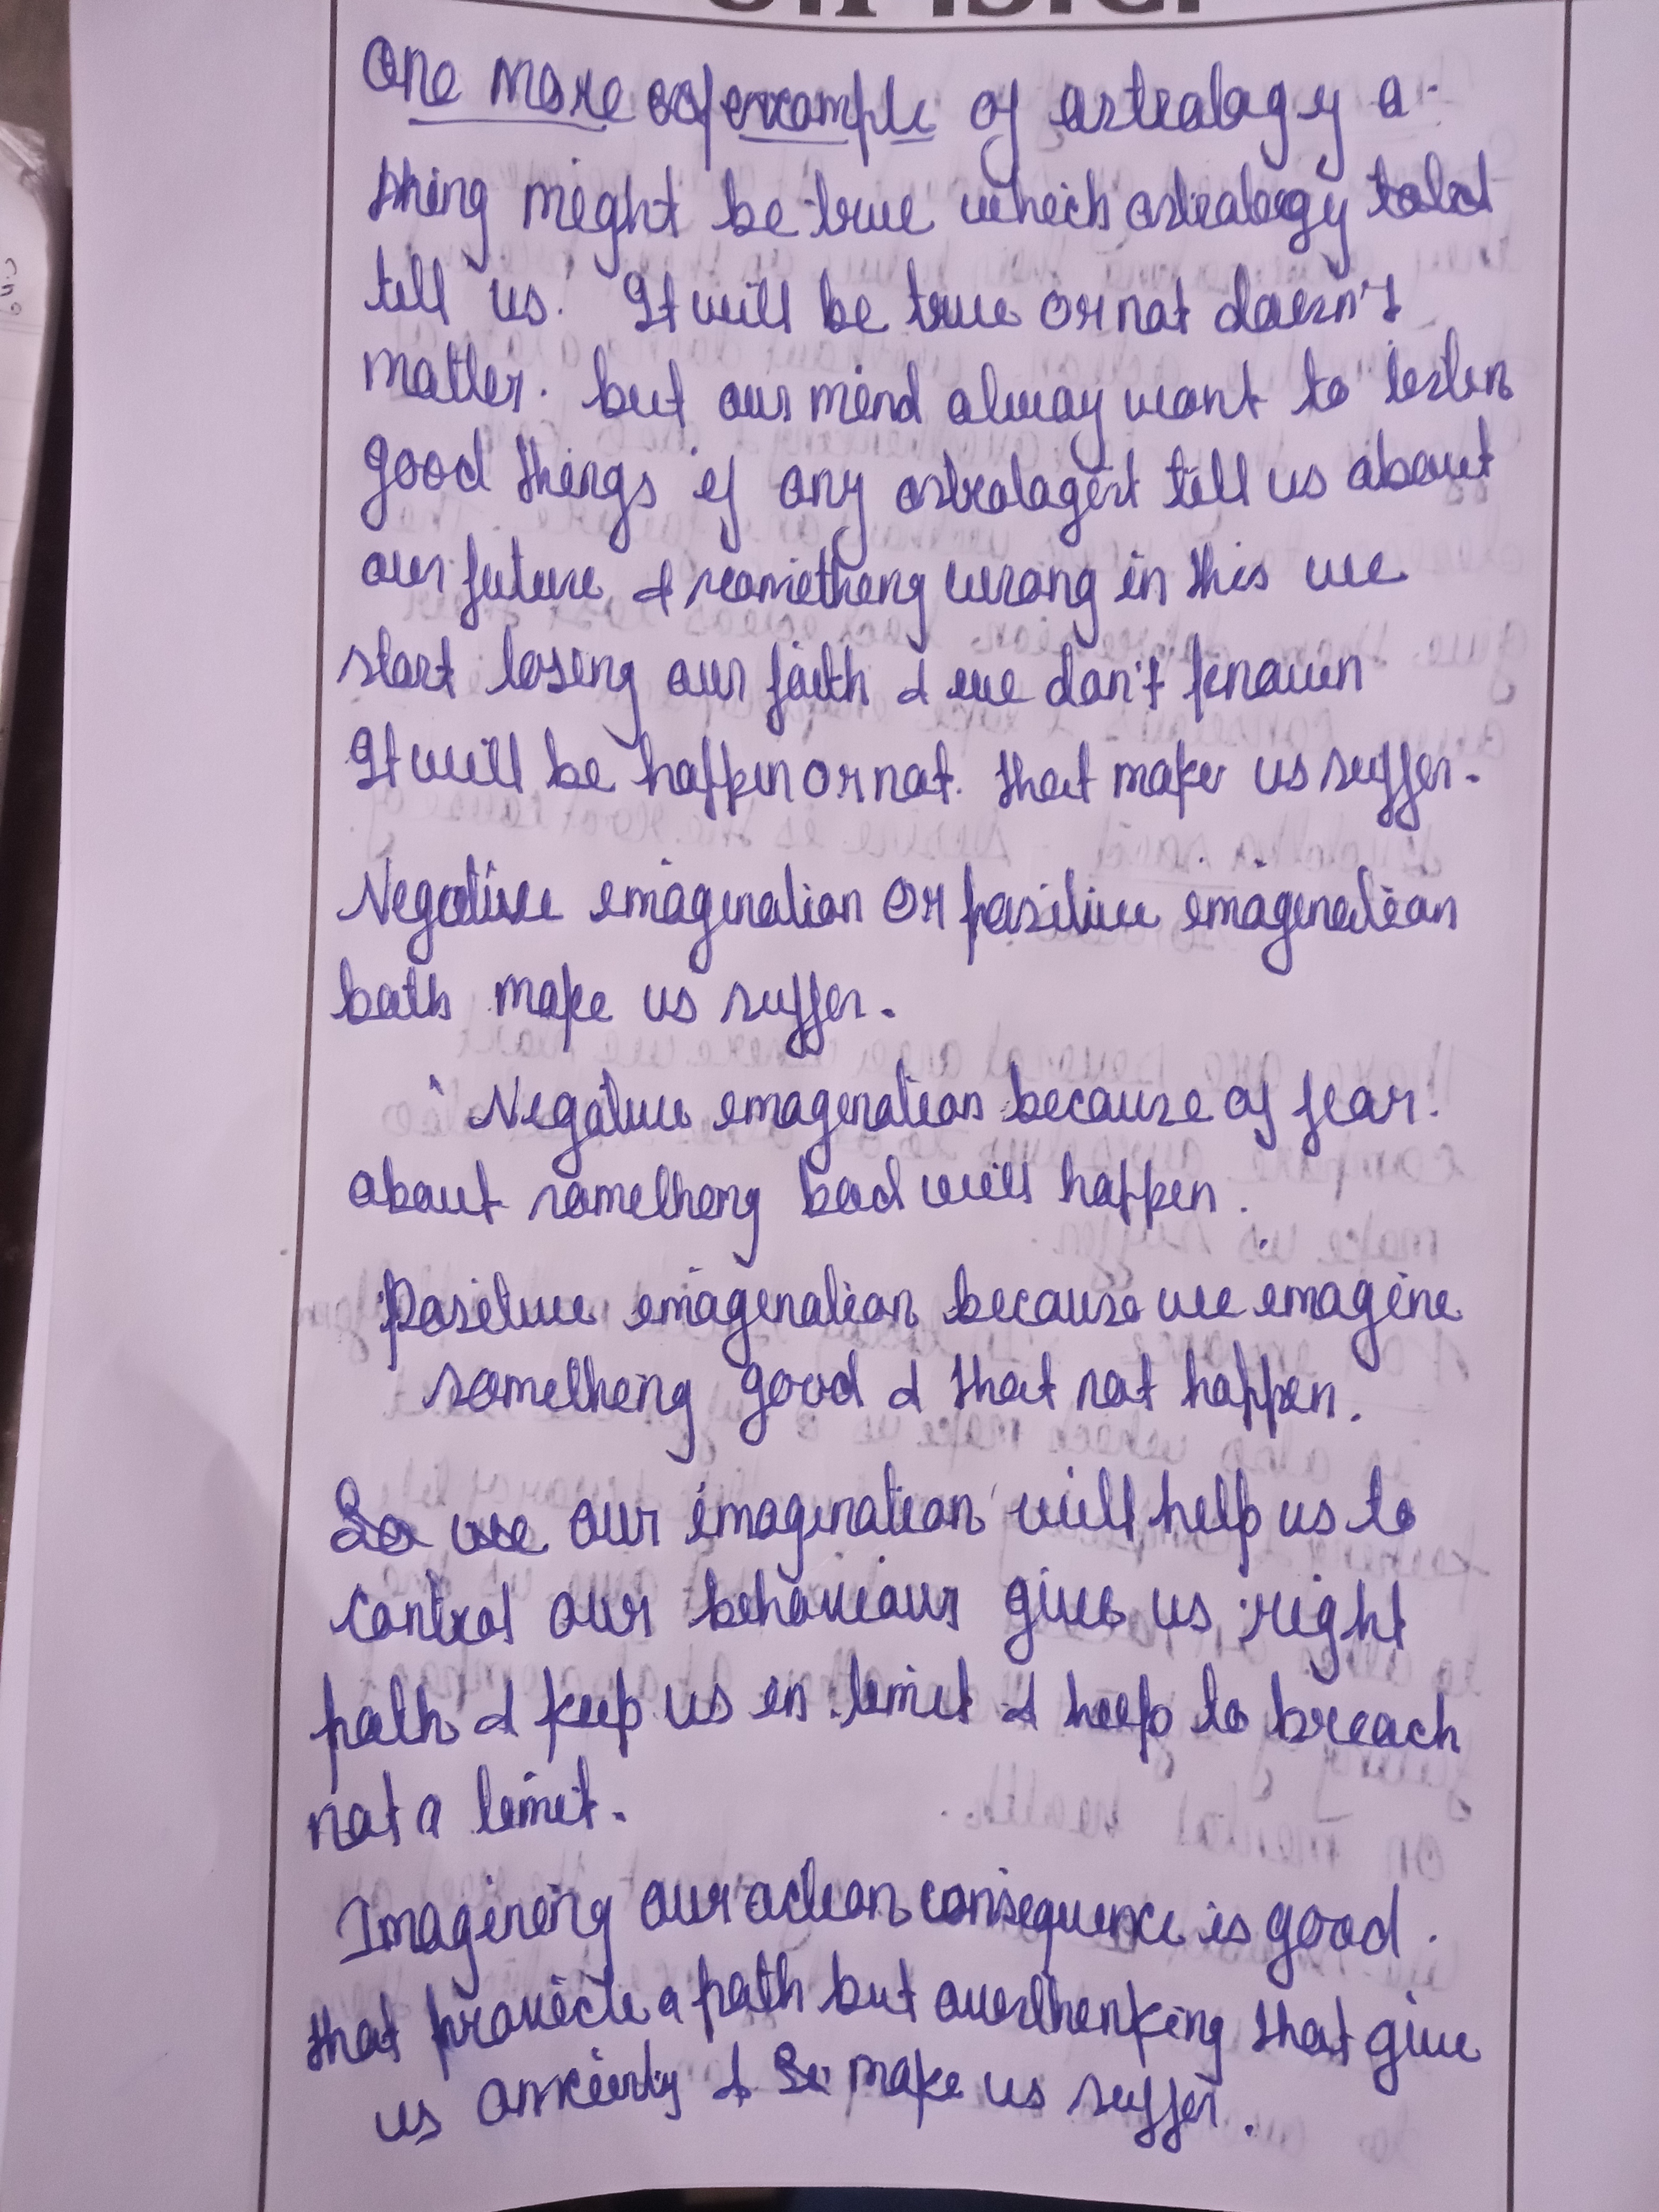 One more example of astrology a
thing might be true which astrology told
tell us. It will be true or not doesn't
matter. but our mind alway want to listen
good things if any astrologist tell us about
our future & something wrong in this we
start losing our faith & we don't known
It will be happen or not. that make us suffer.
Negative emagenation or positive emagenation
both make us suffer.
Negative emagenation because of fear.
about something bad will happen.
Positive emagenation because we emagine
something good & that not happen.
So use our imagination will help us to
control our behaviour give us right
path & keep us in limit & help to breach
not a limit.
Imagining our action consequence is good.
that provide a path but overthinking that give
us anxiety & make us suffer.